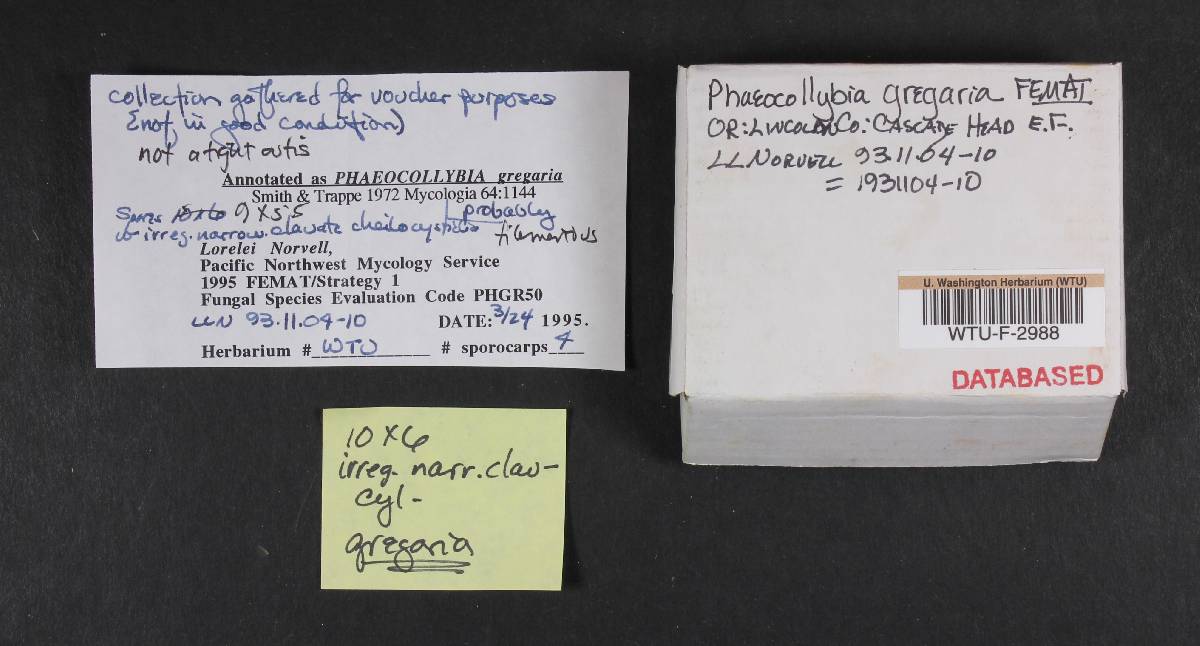 collection gathered for voucher purposes
(not in good condition)
not a tight outis
Annotated as PHAEOCOLLYBIA gregaria
Smith & Trappe 1972 Mycologia 64:1144
9 x 5.5 probably
irreg. narrow. clavate cheilocystidia filamentous
Lorelei Norvell,
Pacific Northwest Mycology Service
1995 FEMAT/Strategy 1
Fungal Species Evaluation Code PHGR50
LLN 93.11.04-10 DATE: 3/24 1995.
Herbarium # WTU # sporocarps 4
10 x 6
irreg. narr. clav-
cyl-
gregaria
Phaeocollybia gregaria FEMAT
OR: LINCOLN CO: CASCADE HEAD E.F.
LL NORVELL 93.11.04-10
= 1931104-10
U. Washington Herbarium (WTU)
WTU-F-2988
DATABASED